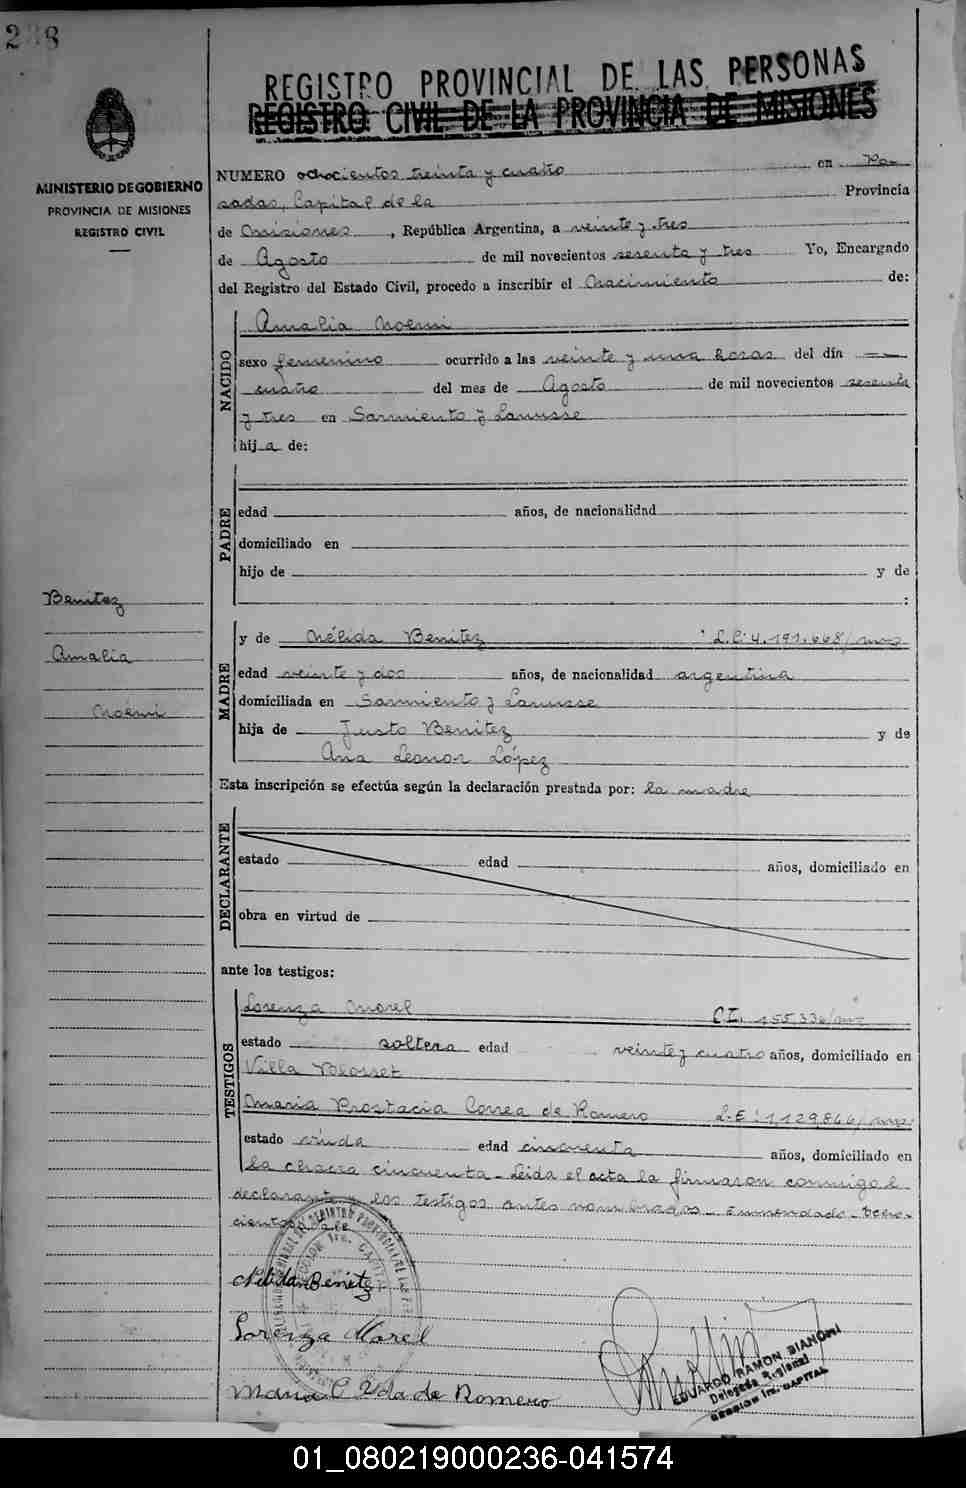 238
REGISTRO PROVINCIAL DE LAS PERSONAS
REGISTRO CIVIL DE LA PROVINCIA DE MISIONES
MINISTERIO DE GOBIERNO
PROVINCIA DE MISIONES
REGISTRO CIVIL
NUMERO ochocientos treinta y cuatro en Po-
sadas, Capital de la Provincia
de Misiones, República Argentina, a veinte y tres
de Agosto de mil novecientos sesenta y tres Yo, Encargado
del Registro del Estado Civil, procedo a inscribir el Nacimiento de:
NACIDO
Amalia Noemi
sexo femenino ocurrido a las veinte y una horas del día
cuatro del mes de Agosto de mil novecientos sesenta
y tres en Sarmiento y Lanusse
hija de:
PADRE
edad años, de nacionalidad
domiciliado en
hijo de y de
:
Benitez
Amalia
Noemi
MADRE
y de Nélida Benitez L.C: 4.191.668/mns
edad veinte y dos años, de nacionalidad argentina
domiciliada en Sarmiento y Lanusse
hija de Justo Benitez y de
Ana Leonor López
Esta inscripción se efectúa según la declaración prestada por: la madre
DECLARANTE
estado edad años, domiciliado en
obra en virtud de
ante los testigos:
TESTIGOS
Lorenza Morel C.I. 155.336/mnz
estado soltera edad veinte y cuatro años, domiciliado en
Villa
Maria Prostacia Correa de Romero L.E: 1.129.866/
estado viuda edad cincuenta años, domiciliado en
la chacra cincuenta - Leida el acta la firmaron conmigo la
declarante y los testigos antes nombrados - Enmendado - Ocho-
cientos: Vale
Nelida Benitez
Lorenza Morel
Maria C Vda de Romero
EDUARDO RAMON BIANCHI
Delegado Regional
SECCION 1ra. CAPITAL
01_080219000236-041574